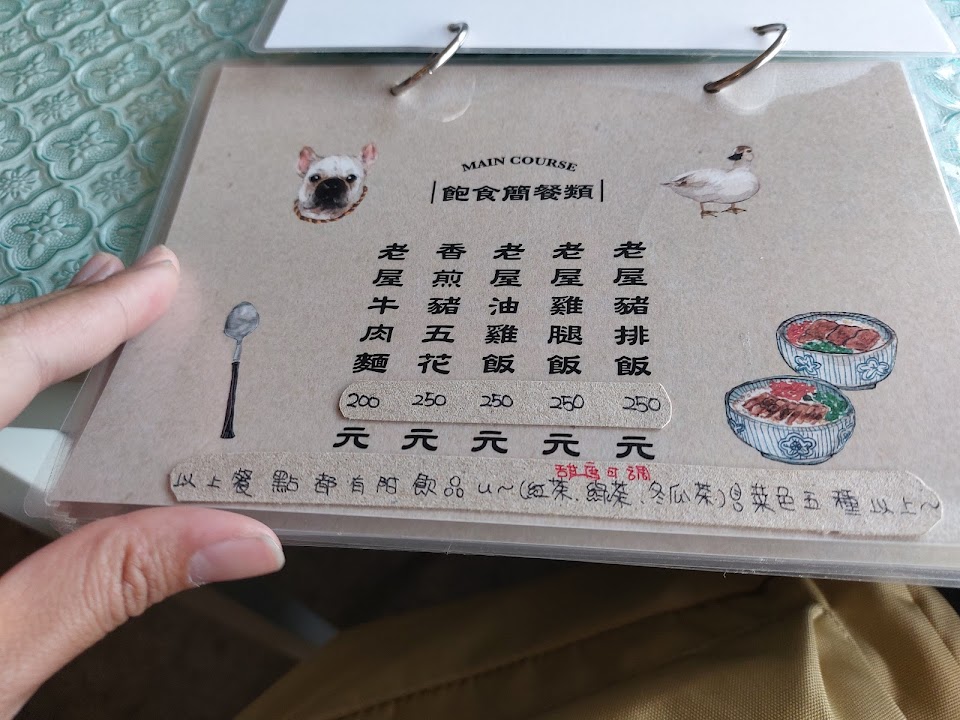 MAIN COURSE
飽食簡餐類
老屋豬排飯 250 元
老屋雞腿飯 250 元
老屋油雞飯 250 元
香煎豬五花 250 元
老屋牛肉麵 200 元
甜度可調
以上餐點都有附飲品ㄩ~(紅茶.綠茶.冬瓜茶)且菜色五種以上~